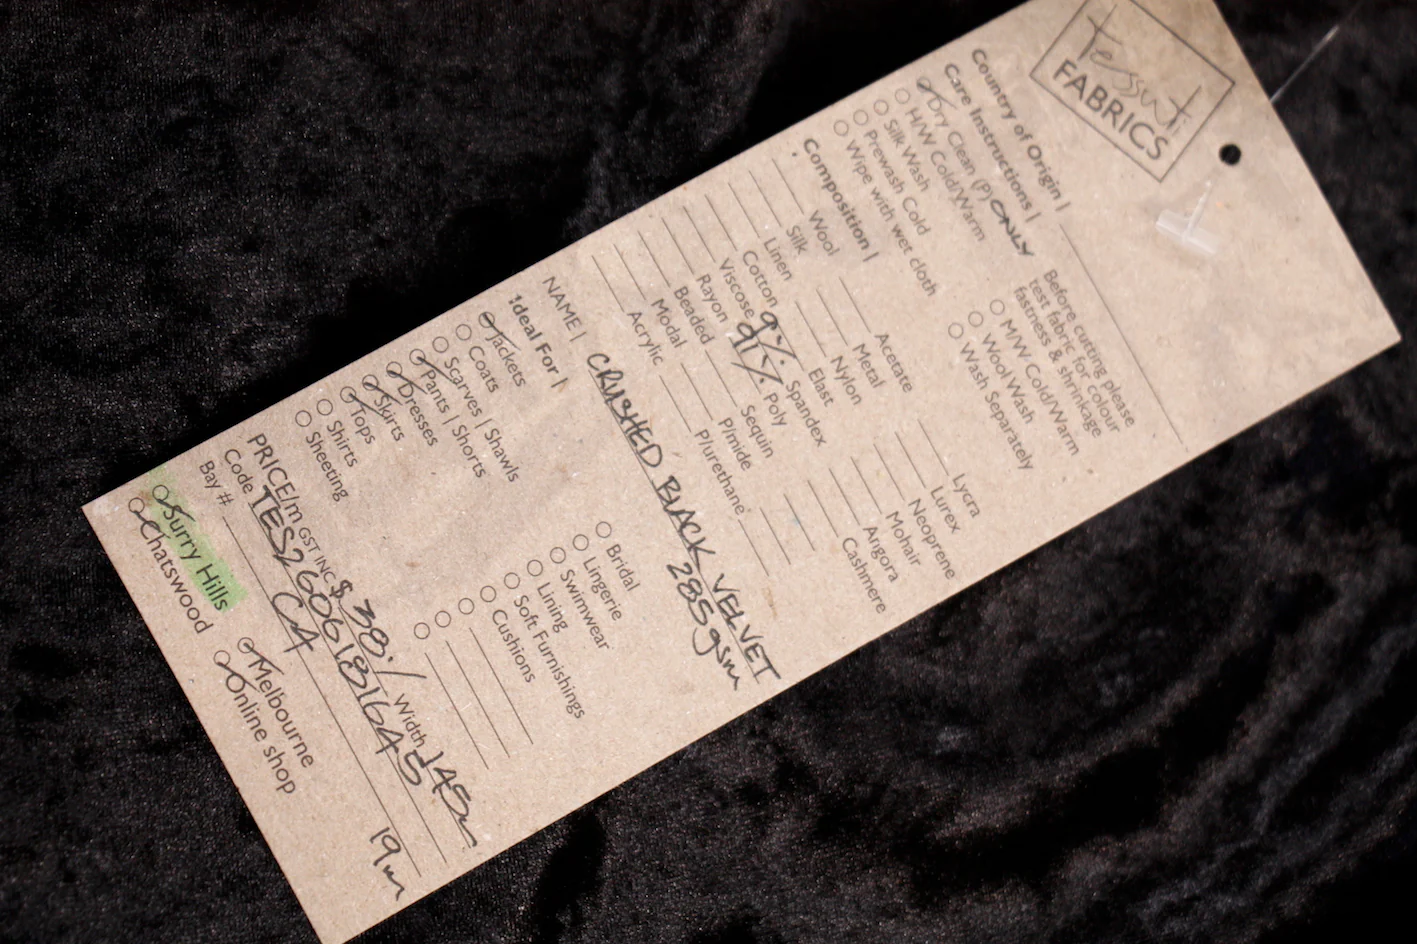 tessuti
FABRICS
Country of Origin |
Care Instructions |
Dry Clean (P) ONLY
H/W Cold/Warm
Silk Wash
Prewash Cold
Wipe with wet cloth
Before cutting please
test fabric for colour
fastness & shrinkage
M/W Cold/Warm
Wool Wash
Wash Separately
Composition |
Wool
Acetate
Lycra
Silk
Metal
Lurex
Linen
Nylon
Neoprene
Cotton
Elast
Mohair
Viscose 9% Spandex
Angora
Rayon 91% Poly
Cashmere
Beaded
Sequin
Modal
P/mide
Acrylic
P/urethane
NAME | CRUSHED BLACK VELVET
285gsm
Ideal For |
Jackets
Coats
Scarves | Shawls
Pants | Shorts
Dresses
Skirts
Tops
Shirts
Sheeting
Bridal
Lingerie
Swimwear
Lining
Soft Furnishings
Cushions
PRICE/m GST INC $38./ Width 145
Code TES2606181645
Bay # CA 19m
Surry Hills
Melbourne
Chatswood
Online shop